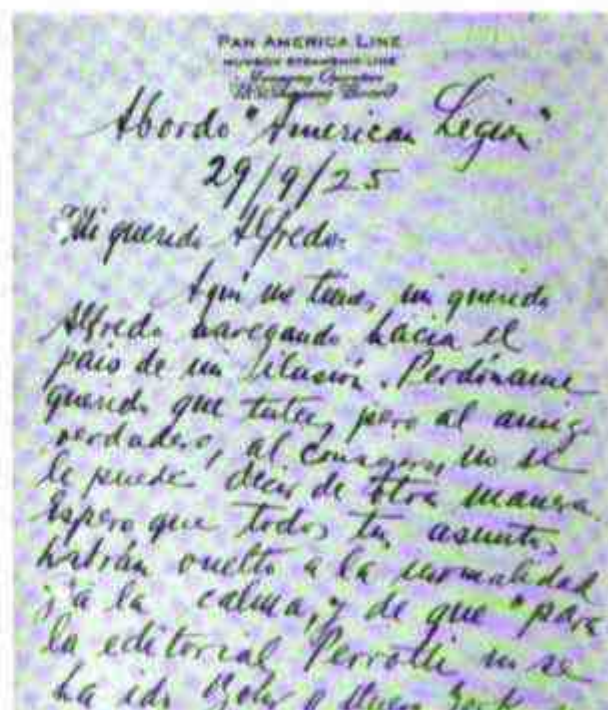 PAN AMERICA LINE
MUNSON STEAMSHIP LINE
Managing Operators
U.S. Shipping Board
Abordo "American Legion"
29/9/25
Mi querido Alfredo:
Aquí me tienes, mi querido
Alfredo navegando hacia el
país de mi ilusión. Perdóname
querido que tutee, pero al amigo
verdadero, al compañero, no se
le puede decir de otra manera.
Espero que todos tus asuntos
habrán vuelto a la normalidad
y a la calma, y de que "para
la editorial Perrotti no se
ha ido Bohr a Nueva York